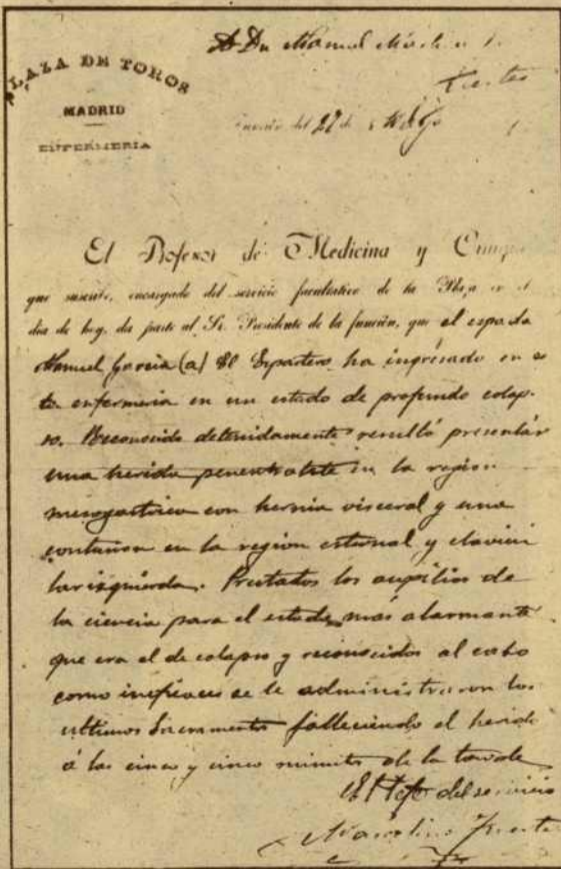 PLAZA DE TOROS
MADRID
ENFERMERIA
D. Dn Manuel
Función del 27 de Mayo
El Profesor de Medicina y
que suscribe, encargado del servicio facultativo de la Plaza en el
día de hoy, da parte al Sr. Presidente de la función, que el espada
Manuel Garcia (a) El Espartero, ha ingresado en es
ta enfermeria en un estado de profundo colap-
so. Reconocido detenidamente resultó presentar
una herida penentratite in la region
mesogastrica con hernia visceral y una
contusion en la region esternal y clavicu
lar izquierda. Prestados los aupilios de
la ciencia para el estado más alarmante
que era el de colapso y reconocidos al cabo
como ineficaces se le administraron los
ultimos Sacramentos falleciendo el herido
á las cinco y cinco minutos de la tarde
El Jefe del servicio
Marcelino Fuerte